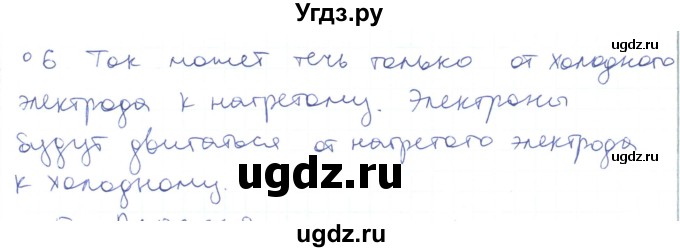 Угдз.ру
°6 Ток может течь только от холодного
ugdz.ru
электрода к нагретому. Электроны
будут двигаться от нагретого электрода
ugdz.ru
к холодному.
ugdz.ru
ugdz.ru